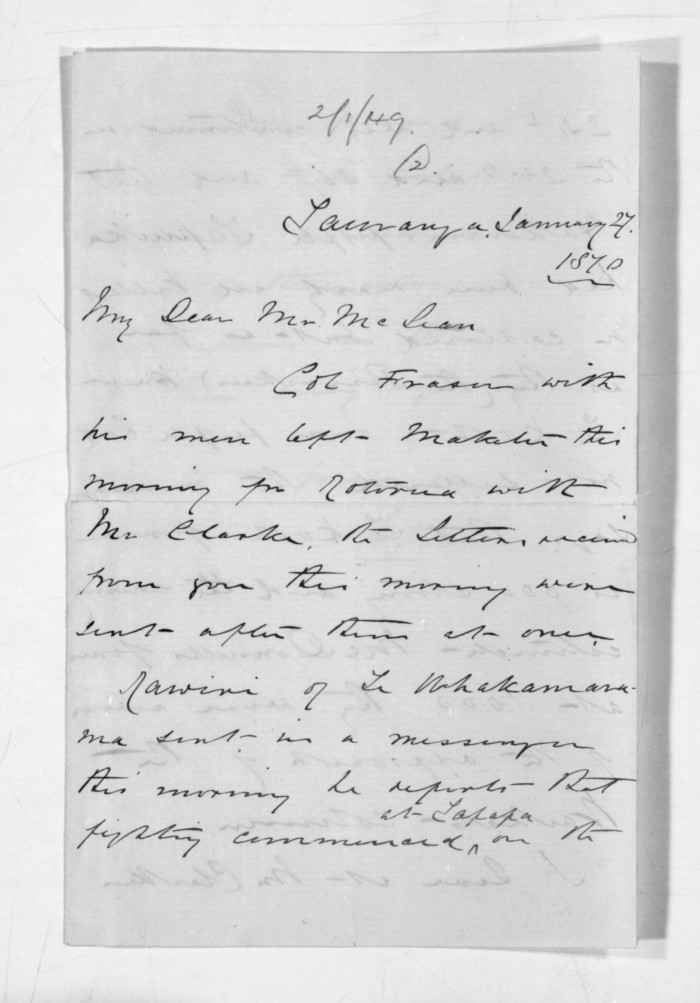 2/1/49.
2.
Tauranga, January 27.
1870
My Dear Mr McLean
Col Fraser with
his men left Maketu this
morning for Rotorua with
Mr Clarke, the letters received
from you this morning were
sent after them at once
Rawiri of Te Whakamara-
ma sent in a messenger
this morning he reports that
at Tapapa
fighting commenced ^ on the